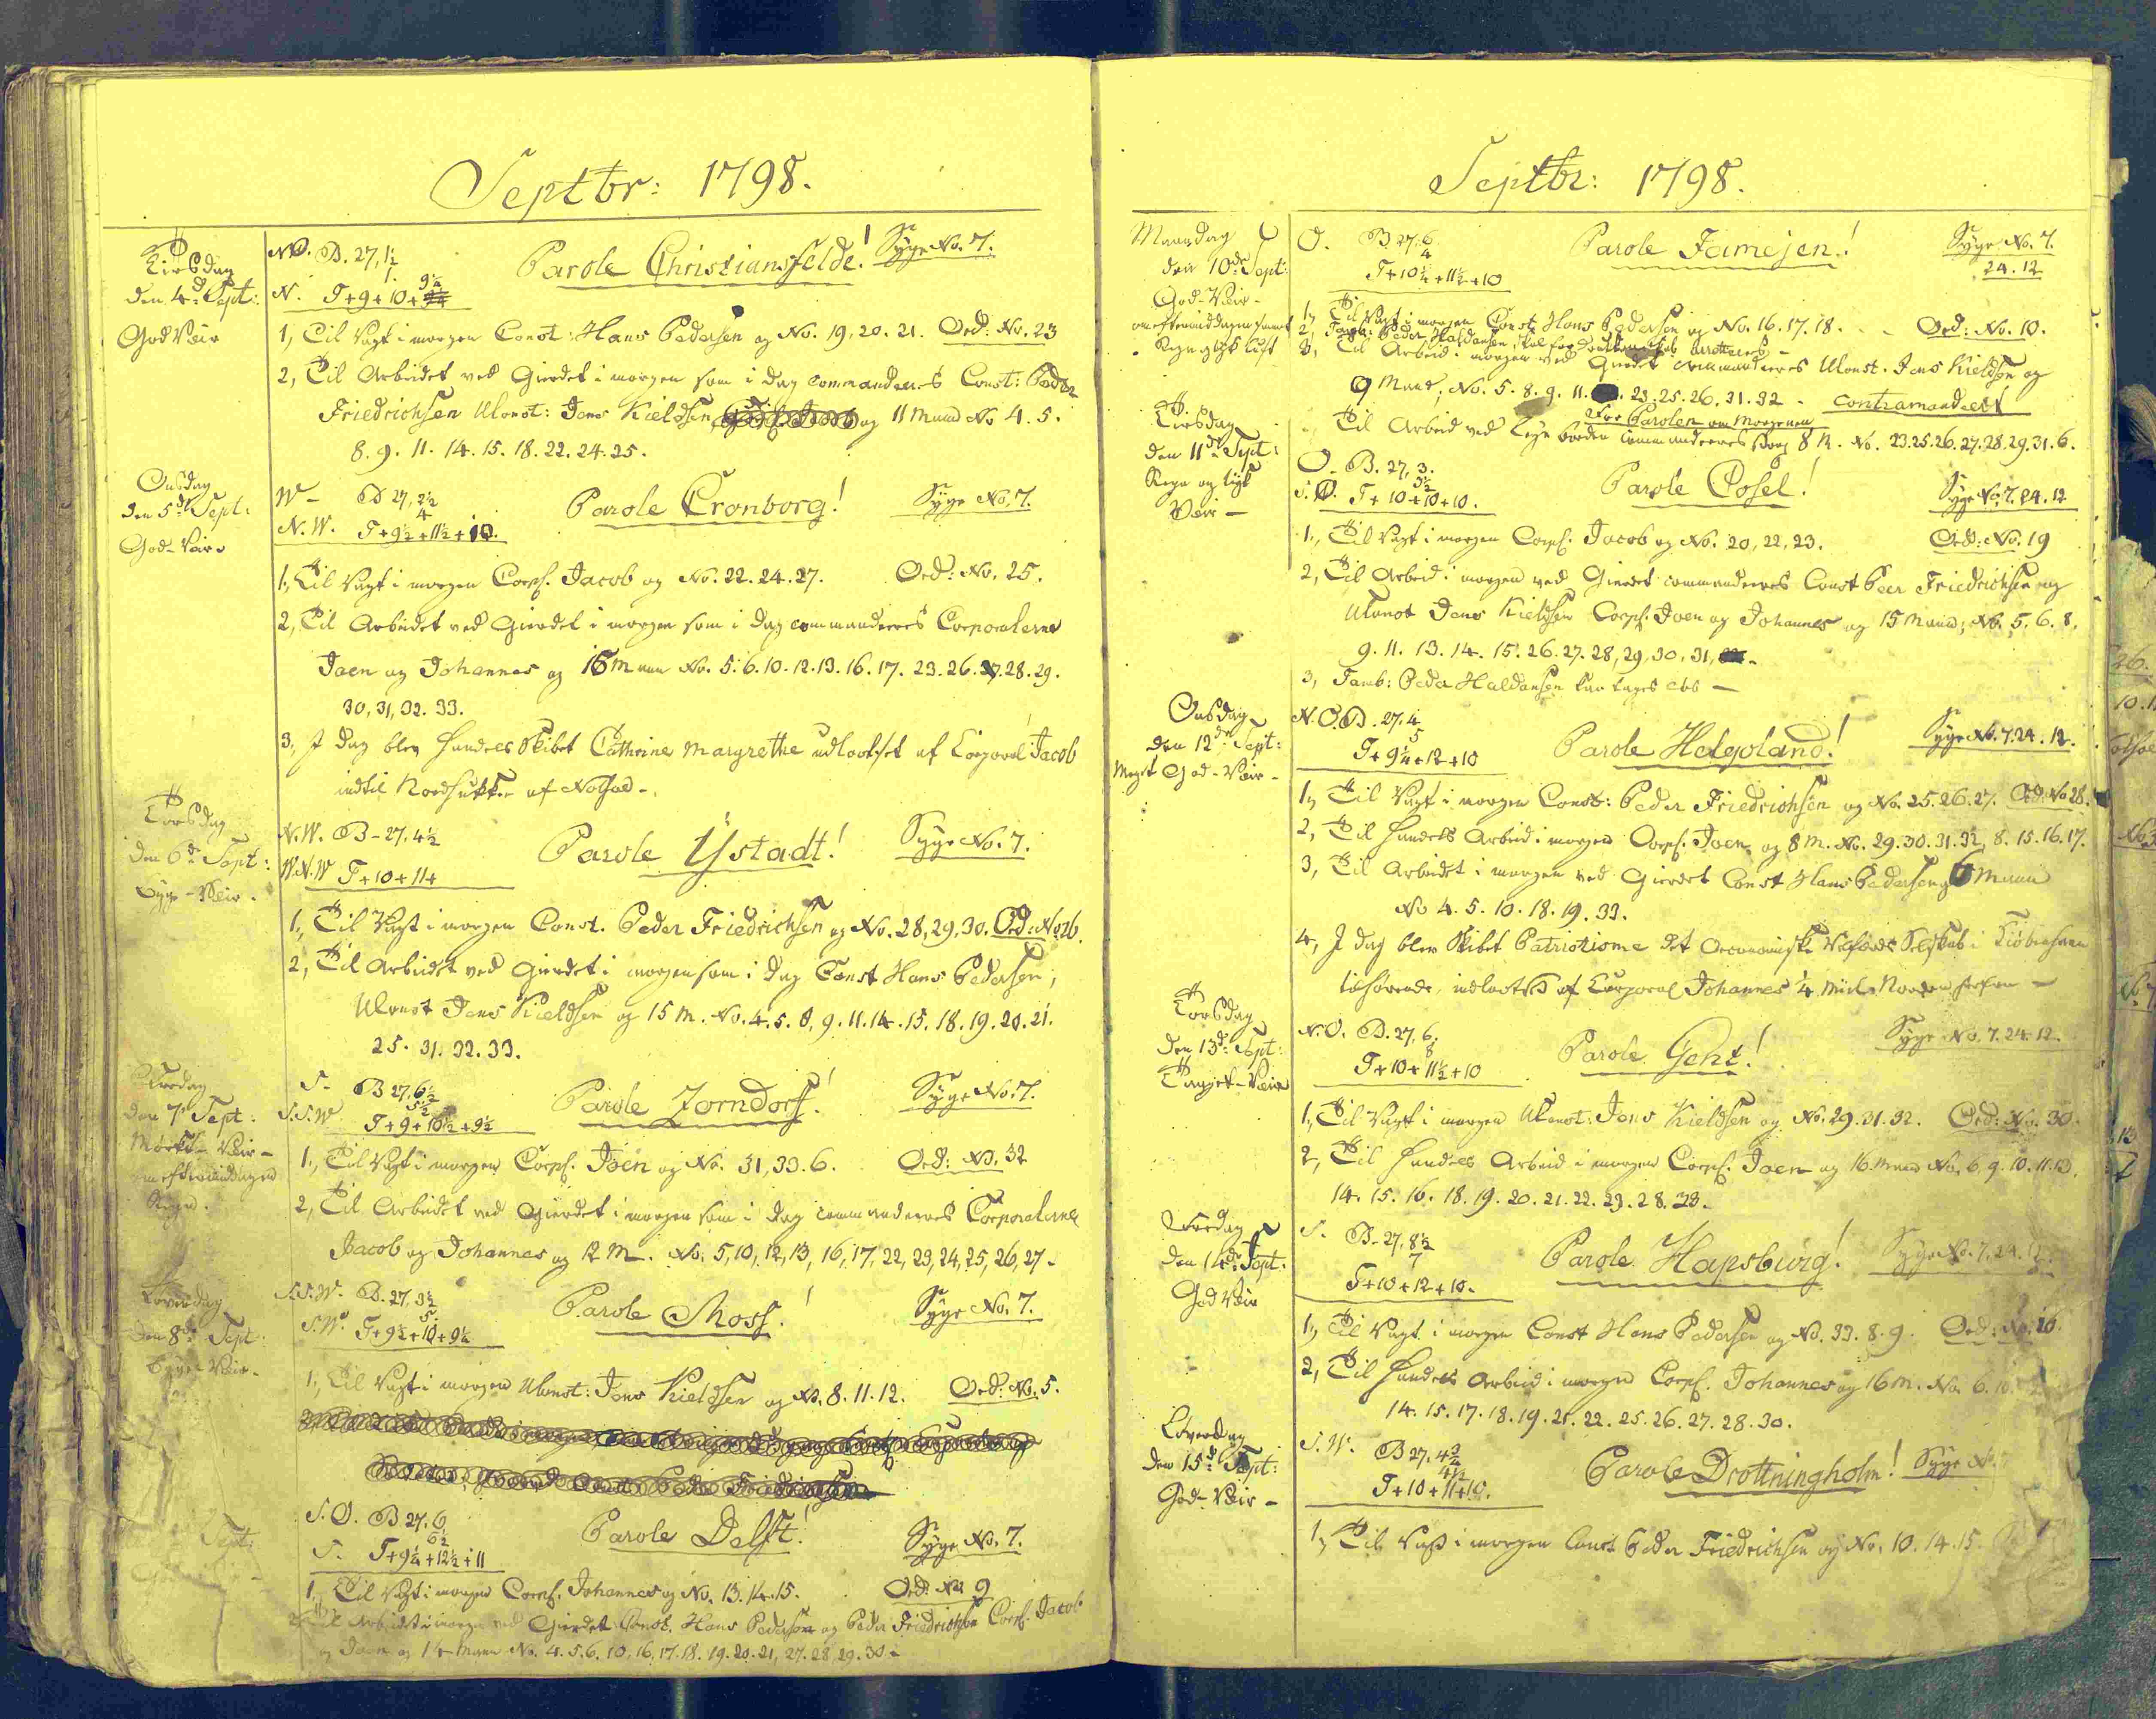 Septbr: 1798.
Tirsdag
den 4de Sept:
God Veir
NO. B. 27, 1½
1.
N. T+9+10+ 9¼
Parole Christiansfelde!
Syge No. 7.
1, Til Vagt i morgen Const: Hans Pedersen og No. 19, 20. 21. Ord: No. 23
2, Til Arbeidet ved Gierdet i morgen som i dag commanderes Const: Peder
Friedrichsen Uconst: Jens Kieldsen og 11 Mand No 4. 5.
8. 9. 11. 14. 15. 18. 22. 24. 25.
Onsdag
den 5de Sept:
God-Veir
W- B 27, 2½
4
N.W. T+9½+11½+10.
Parole Cronborg!
Syge No. 7.
1, Til Vagt i morgen Corpl. Jacob og No. 22. 24. 27. Ord: No. 25.
2, Til Arbeidet ved Gierdet i morgen som i dag commanderes Corporalerne
Joen og Johannes og 16 Mann No. 5. 6. 10. 12. 13. 16. 17. 23. 26. 27. 28. 29.
30, 31, 32. 33.
3, I dag blev Handels Skibet Cathrine Margrethe udlodset af Corporal Jacob
indtil af Nolsøe-
Torsdag
den 6de Sept:
Byge-Veir.
N.W. B-27, 4½
W.N.W T+10+11+
Parole Ÿstadt!
Syge No. 7.
1, Til Vagt i morgen Const. Peder Friedrichsen og No. 28, 29, 30. Ord: No 26.
2, Til Arbeidet ved Gierdet i morgen som i dag Const Hans Pedersen,
Uconst Jens Kieldsen og 15 M. No. 4. 5. 8, 9. 11. 14. 15. 18. 19. 20. 21.
25. 31. 32. 33.
Fredag
den 7de Sept:
Mørkt-Veir-
om eftermiddagen
Regn.
S. B 27, 6½
5½
S.S.W T+9+10½+9½
Parole Zorndorf!
Syge No. 7.
1, Til Vagt i morgen Corpl. Joen og No. 31, 33. 6. Ord: No. 32
2, Til Arbeidet ved Gierdet i morgen som i dag commanderes Corporalerne
Jacob og Johannes og 12 M. No. 5, 10, 12, 13, 16, 17, 22, 23, 24, 25, 26, 27-
Løverdag
den 8de Sept:
Byge-Veir-
S.S.W. B. 27, 3½
5.
S.W. T+9½+10+9¼
Parole Moss!
Syge No. 7.
1, Til Vagt i morgen Uconst: Jens Kieldsen og No. 8. 11. 12. Ord: No. 5.
Sept:
S.O. B 27. 6
6½
S. T+9¼+12½+11
Parole Delft!
Syge No. 7.
1, Til Vagt i morgen Corpl. Johannes og No. 13. 14. 15. Ord: No 9
2, Til Arbeidet i morgen ved Gierdet Const. Hans Pedersen og Peder Friedrichsen Corpl. Jacob
og Joen og 14 Mann No. 4. 5. 6. 10, 16, 17. 18. 19. 20. 21, 27. 28, 29. 30-
Septbr: 1798.
Mandag
den 10de Sept:
God-Veir-
om eftermiddagen samt
Regn og tyk luft
O. B. 27, 6.
4
T+10¼+11½+10
Parole Jamejen!
Syge No. 7.
24. 12
1, Til Vagt i morgen Const: Hans Pedersen og No. 16. 17. 18. - - Ord: No. 10.
2, Tamb: Peder Haldansen skal for arresteres-
3, Til Arbeid i morgen ved Gierdet commanderes Uconst. Jens Kieldsen og
9 Mand; No. 5. 8. 9. 11. 23. 25. 26. 31. 32 - contramandert
For Parolen om Morgenen
Til Arbeid ved commanderes strax 8 M. No. 23. 25. 26. 27. 28. 29. 31. 6.
Tirsdag
den 11de Sept:
Regn og tyk
Veir-
O. B. 27, 3.
3½
S.O. T+10+10+10.
Parole Cosel!
Syge No. 7. 24. 12
1, Til Vagt i morgen Corpl. Jacob og No. 20, 22, 23. Ord: No. 19
2, Til Arbeid i morgen ved Gierdet commanderes Const Peer Friedrichsen og
Uconst Jens Kieldsen Corpl. Joen og Johannes og 15 Mann; No. 5. 6. 8.
9. 11. 13. 14. 15. 26. 27. 28, 29, 30, 31,
3, Tamb: Peder Haldansen kan tages løs-
Onsdag
den 12de Sept:
Meget God-Veir-
N.O. B. 27. 4.
5
T+9¼+12+10
Parole Helgoland!
Syge No. 7. 24. 12.
1, Til Vagt i morgen Const: Peder Friedrichsen og No. 25. 26. 27. Ord: No 28.
2, Til Handels Arbeid i morgen Corpl. Joen og 8 M. No. 29. 30. 31. 32, 8. 15. 16. 17.
3, Til Arbeidet i morgen ved Gierdet Const Hans Pedersen og 6 Mann
No 4. 5. 10. 18. 19. 33.
4, I dag blev Skibet Patriotisme det Oeconomiske Velfærds Selskab i Kiøbenhavn
tilhørende, udlodset af Corporal Johannes ¼ Miil Norden herfra-
Torsdag
den 13de Sept:
Veir
N.O. B. 27, 6.
8
T+10+11½+10
Parole Gent!
Syge No. 7. 24. 12.
1, Til Vagt i morgen Uconst: Jens Kieldsen og No. 29. 31. 32. Ord: No. 30.
2, Til Handels Arbeid i morgen Corpl. Joen og 16 Mann No. 6. 9. 10. 11. 13.
14. 15. 16. 18. 19. 20. 21. 22. 23. 28. 33.
Fredag
den 14de Sept:
God Veir
S. B-27, 8½
7
T+10+12+10.
Parole Hapsburg!
Syge No. 7, 24. 12.
1, Til Vagt i morgen Const Hans Pedersen og No. 33. 8. 9. Ord: No. 16.
2, Til Handels Arbeid i morgen Corpl. Johannes og 16 M. No. 6. 10.
14. 15. 17. 18. 19. 21. 22. 25. 26. 27. 28. 30.
Løverdag
den 15de Sept:
God-Veir-
S.W. B 27, 4¾
4½
T+10+11+10.
Parole Drottningholm!
Syge No.
1, Til Vagt i morgen Const Peder Friedrichsen og No. 10. 14. 15.